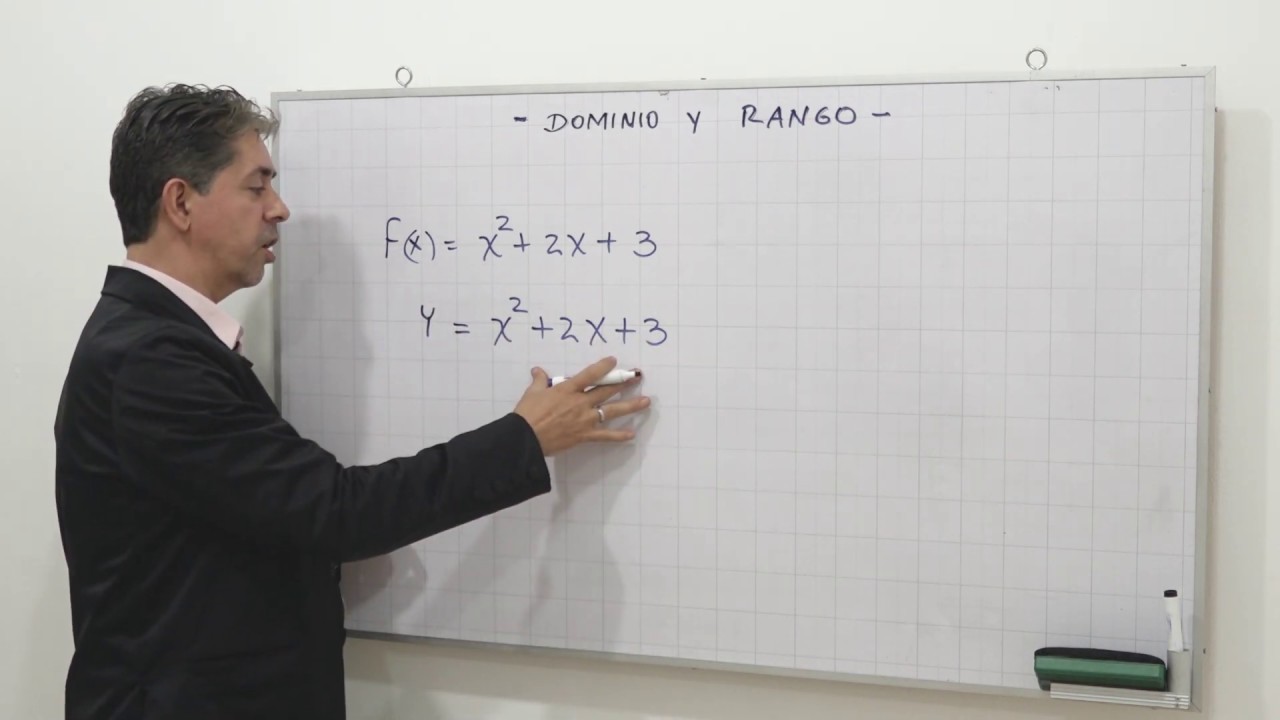 - DOMINIO Y RANGO -
F(x) = x² + 2x + 3
Y = x² + 2x + 3